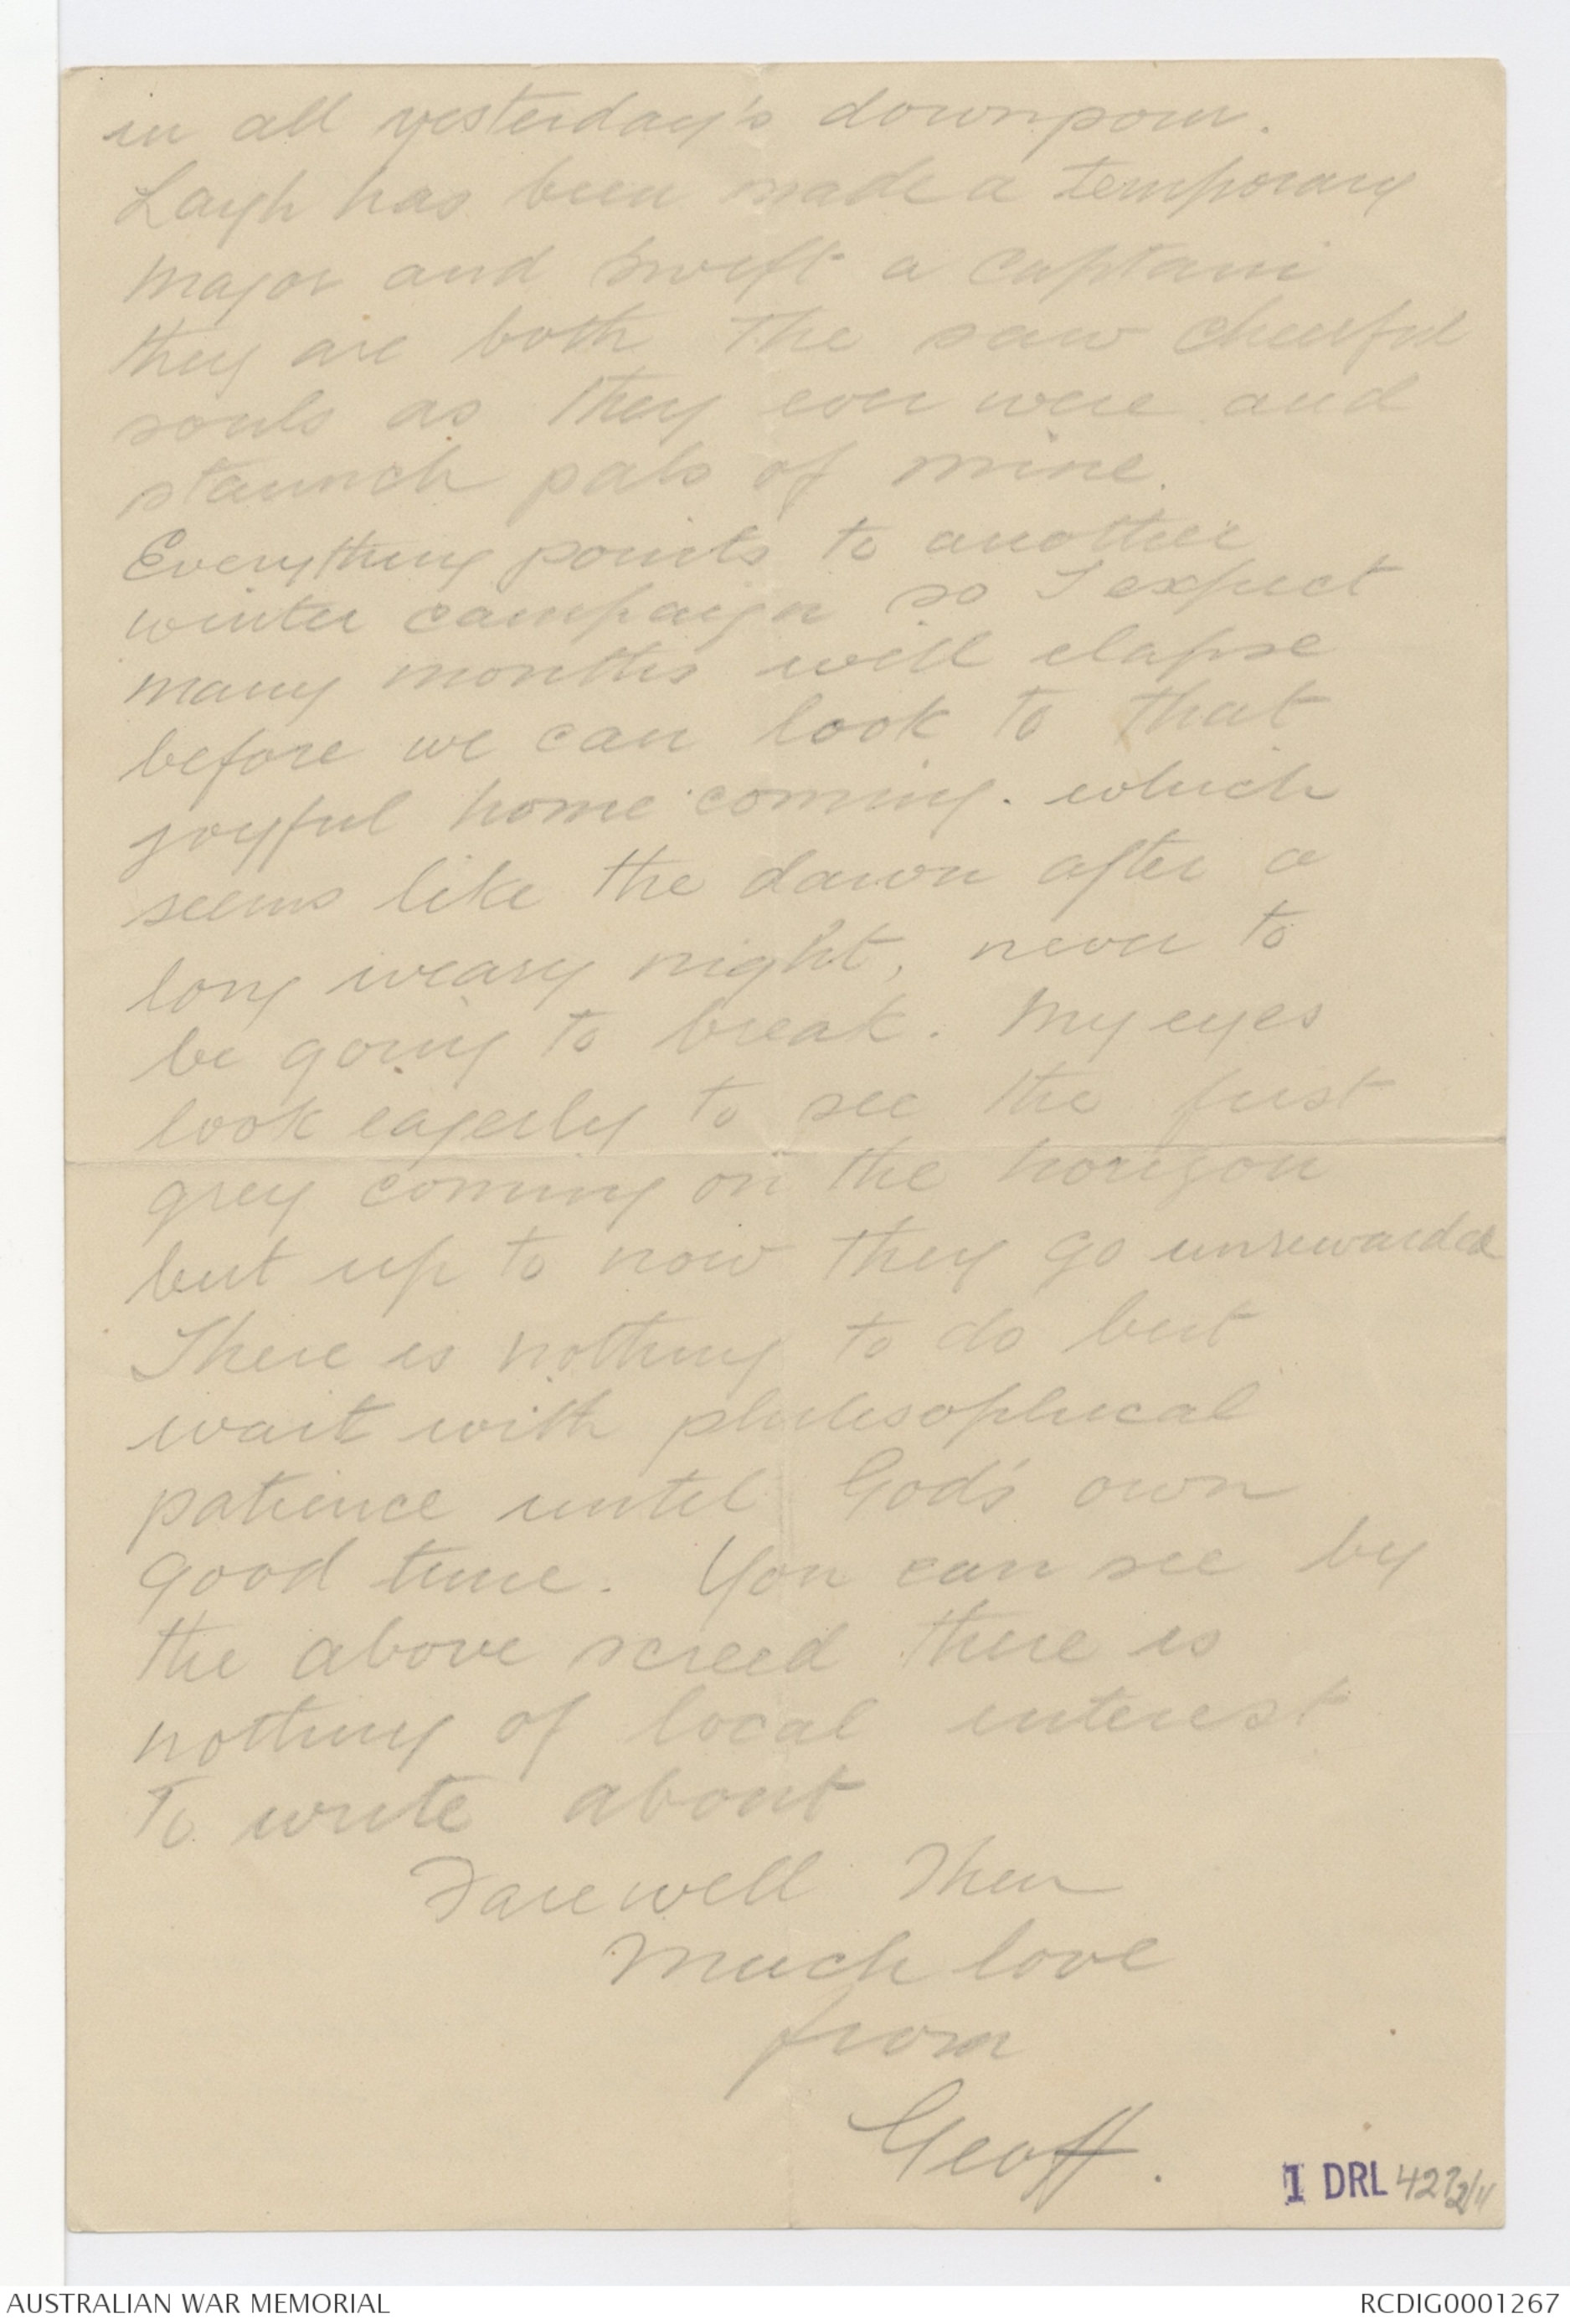 in all yesterday's downpour.
Laugh has been made a temporary
Major and Swift a Captain
they are both the saw cheerful
souls as they ever were and
staunch pals of mine.
Everything points to another
winter campaign so I expect
many months will elapse
before we can look to that
joyful home coming. which
seems like the dawn after a
long weary night, never to
be going to break. My eyes
look eagerly to see the first
grey coming on the horizon
but up to now they go unrewarded
There is nothing to do but
wait with philosophical
patience until God's own
good time. You can see by
the above screed there is
nothing of local interest
to write about
Farewell Then
Much love
from
Geoff.
1 DRL 427 2/11
AUSTRALIAN WAR MEMORIAL
RCDIG0001267